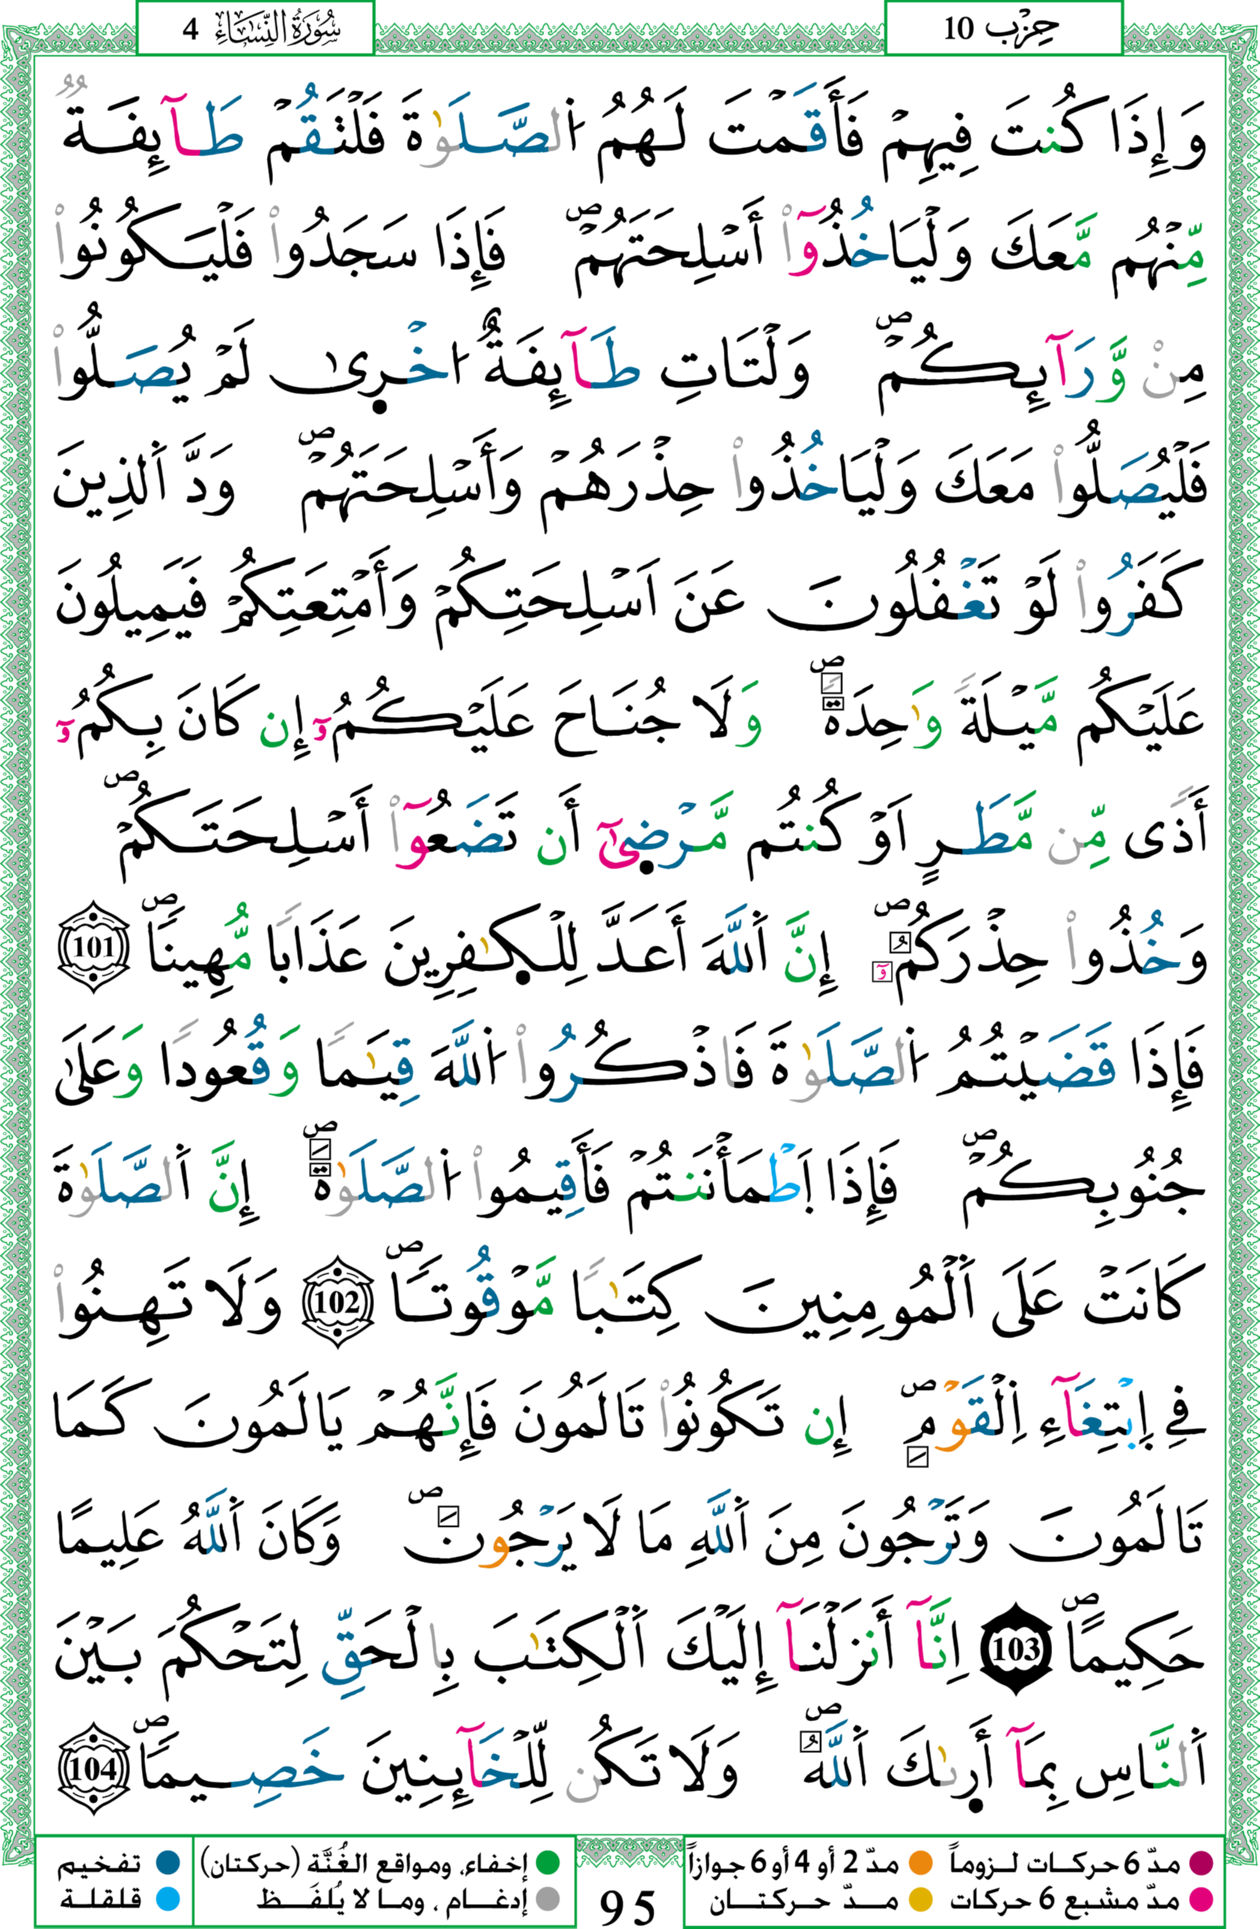 حِزْب 10
سُورَةُ النِّسَاءِ 4
وَإِذَا كُنتَ فِيهِمْ فَأَقَمْتَ لَهُمُ اُ۬لصَّلَوٰةَ فَلْتَقُمْ طَآئِفَةٞ
مِّنْهُم مَّعَكَ وَلْيَاخُذُوٓاْ أَسْلِحَتَهُمْۖ فَإِذَا سَجَدُواْ فَلْيَكُونُواْ
مِنْ وَّرَآئِكُمْۖ وَلْتَاتِ طَآئِفَةٌ ا۟خْر۪يٰ لَمْ يُصَلُّواْ
فَلْيُصَلُّواْ مَعَكَ وَلْيَاخُذُواْ حِذْرَهُمْ وَأَسْلِحَتَهُمْۖ وَدَّ اَ۬لذِينَ
كَفَرُواْ لَوْ تَغْفُلُونَ عَنَ اَسْلِحَتِكُمْ وَأَمْتِعَتِكُمْ فَيَمِيلُونَ
عَلَيْكُم مَّيْلَةٗ وَٰحِدَةٗۖ وَلَا جُنَاحَ عَلَيْكُمُۥٓ إِن كَانَ بِكُمُۥٓ
أَذٗى مِّن مَّطَرٍ اَوْ كُنتُم مَّرْض۪يٰٓ أَن تَضَعُوٓاْ أَسْلِحَتَكُمْۖ
وَخُذُواْ حِذْرَكُمُۥٓۖ إِنَّ اَ۬للَّهَ أَعَدَّ لِلْكٰ۪فِرِينَ عَذَابٗا مُّهِيناٗۖ 101
فَإِذَا قَضَيْتُمُ اُ۬لصَّلَوٰةَ فَاذْكُرُواْ اُ۬للَّهَ قِيَٰمٗا وَقُعُودٗا وَعَلَىٰ
جُنُوبِكُمْۖ فَإِذَا اَ۪طْمَأْنَنتُمْ فَأَقِيمُواْ اُ۬لصَّلَوٰةَۖ إِنَّ اَ۬لصَّلَوٰةَ
كَانَتْ عَلَى اَ۬لْمُومِنِينَ كِتَٰبٗا مَّوْقُوتاٗۖ 102 وَلَا تَهِنُواْ
فِي اِ۪بْتِغَآءِ اِ۬لْقَوْمِۖ إِن تَكُونُواْ تَالَمُونَ فَإِنَّهُمْ يَالَمُونَ كَمَا
تَالَمُونَ وَتَرْجُونَ مِنَ اَ۬للَّهِ مَا لَا يَرْجُونَۖ وَكَانَ اَ۬للَّهُ عَلِيمًا
حَكِيمًاۖ 103 اِنَّآ أَنزَلْنَآ إِلَيْكَ اَ۬لْكِتَٰبَ بِالْحَقِّ لِتَحْكُمَ بَيْنَ
اَ۬لنَّاسِ بِمَآ أَر۪ىٰكَ اَ۬للَّهُۖ وَلَا تَكُن لِّلْخَآئِنِينَ خَصِيماٗۖ 104
مدّ 6 حركات لزوماً مدّ 2 أو 4 أو 6 جوازاً
مدّ مشبع 6 حركات مدّ حركتان
95
إخفاء، ومواقع الغُنَّة (حركتان) تفخيم
إدغام ، وما لا يُلفَظ قلقلة